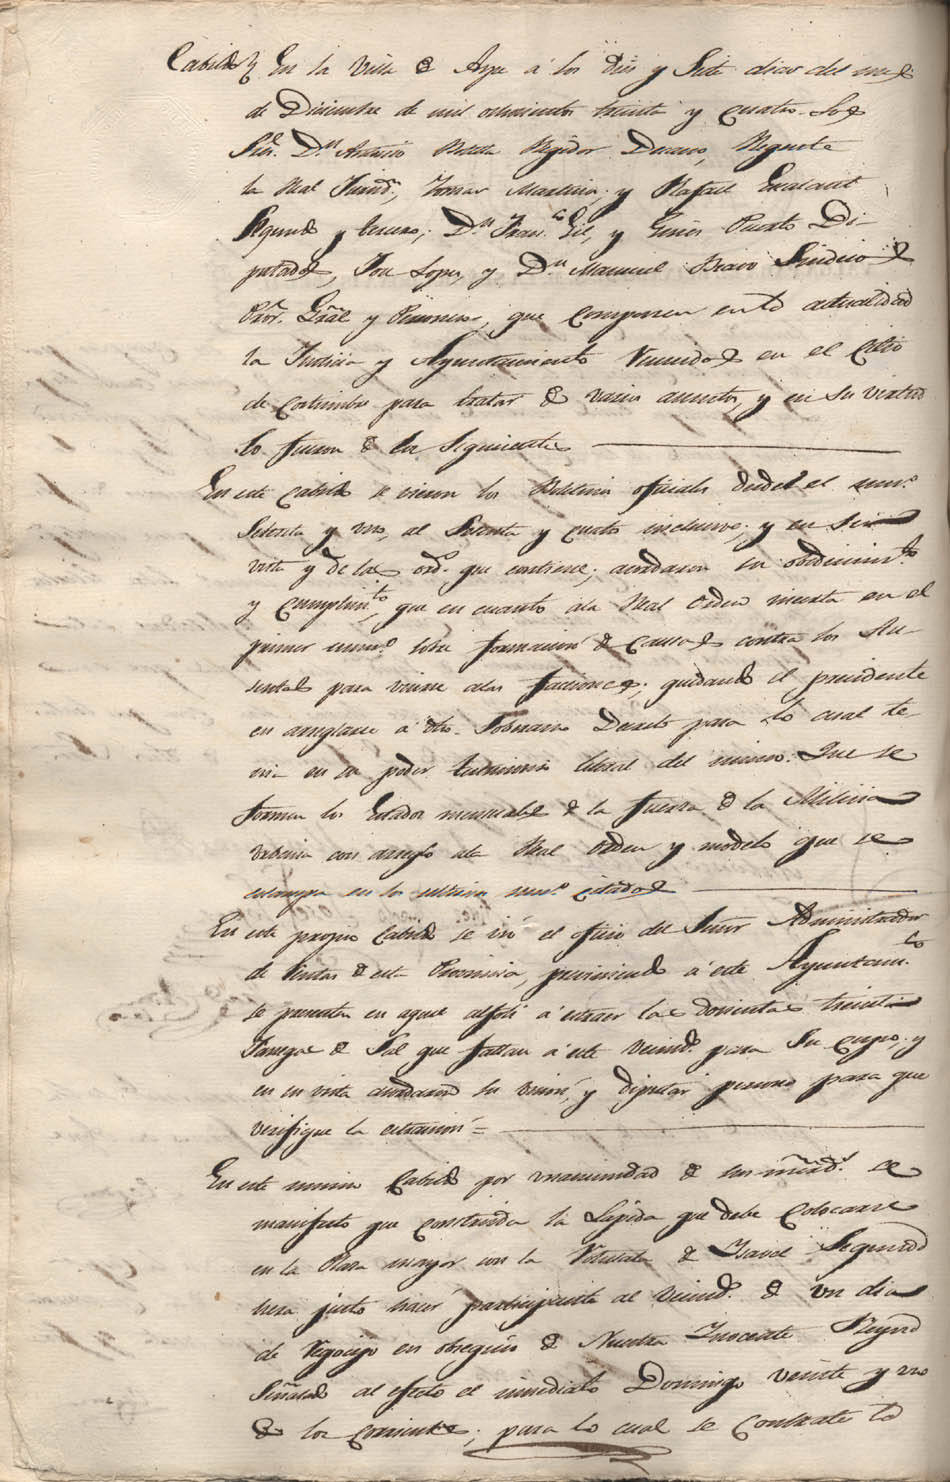 Cabildo En la Villa de Aspe á los Diez y Siete dias del mes
de Diciembre de mil ochocientos treinta y cuatro. Los
Sres. Dn Antonio Regidor Decano, Regente
la Real Juridn, Tomas Martinez, y Rafael
Segundo y tercero; Dn Franco. Gil, y Gines Puerto Di-
putados, José Lopez, y Dn Manuel Bravo Sindicos
Pror. Gral y Personero, que componen en la actualidad
la Justicia y Ayuntamiento Reunidos en el Citio
de costumbre para tratar de varios asuntos, y en su virtud
lo fueron de los Siguientes
En este Cabildo se vieron los Boletines oficiales desde el numo.
Setenta y uno, al Setenta y cuatro inclusive; y en Su
vista y de las ords. que contiene; acordaron su obedecimto.
y cumplimto, que en cuanto á la Real orden inserta en el
primer numo. sobre formacion de Causas contra los Au-
sentes para unirse a las facciones; quedando el presidente
en arreglarse á dho. Soberano Decreto para lo cual te-
nia en su poder testimonio literal del mismo. Que se
formen los Estados mensuales de la fuerza de la Milicia
Urbana con arreglo a la Real orden y modelo que se
estampa en los ultimos numos. citados
En este propio Cabildo se vió el oficio del Señor Administrador
de Rentas de esta Provincia, previniendo á este Ayuntamto.
se presenten en aquel alfolí á extraer las doscientas treinta
Fanegas de Sal que faltan á este Vecindo. para Su Cupo, y
en su vista acordaron su union, y diputar persona para que
verifique la estraccion =
En este mismo Cabildo por unanimidad de sus mercedes. se
manifestó que construida la Lapida que debe Colocarse
en la Plaza mayor con la de Isavel Segunda
hera justo hacer participante al Vecindo. de un dia
de Regocijo en obsequio de Nuestra Inocente Reyna
Señalado al efecto el inmediato Domingo veinte y uno
de los corrientes; para lo cual se Contrate la